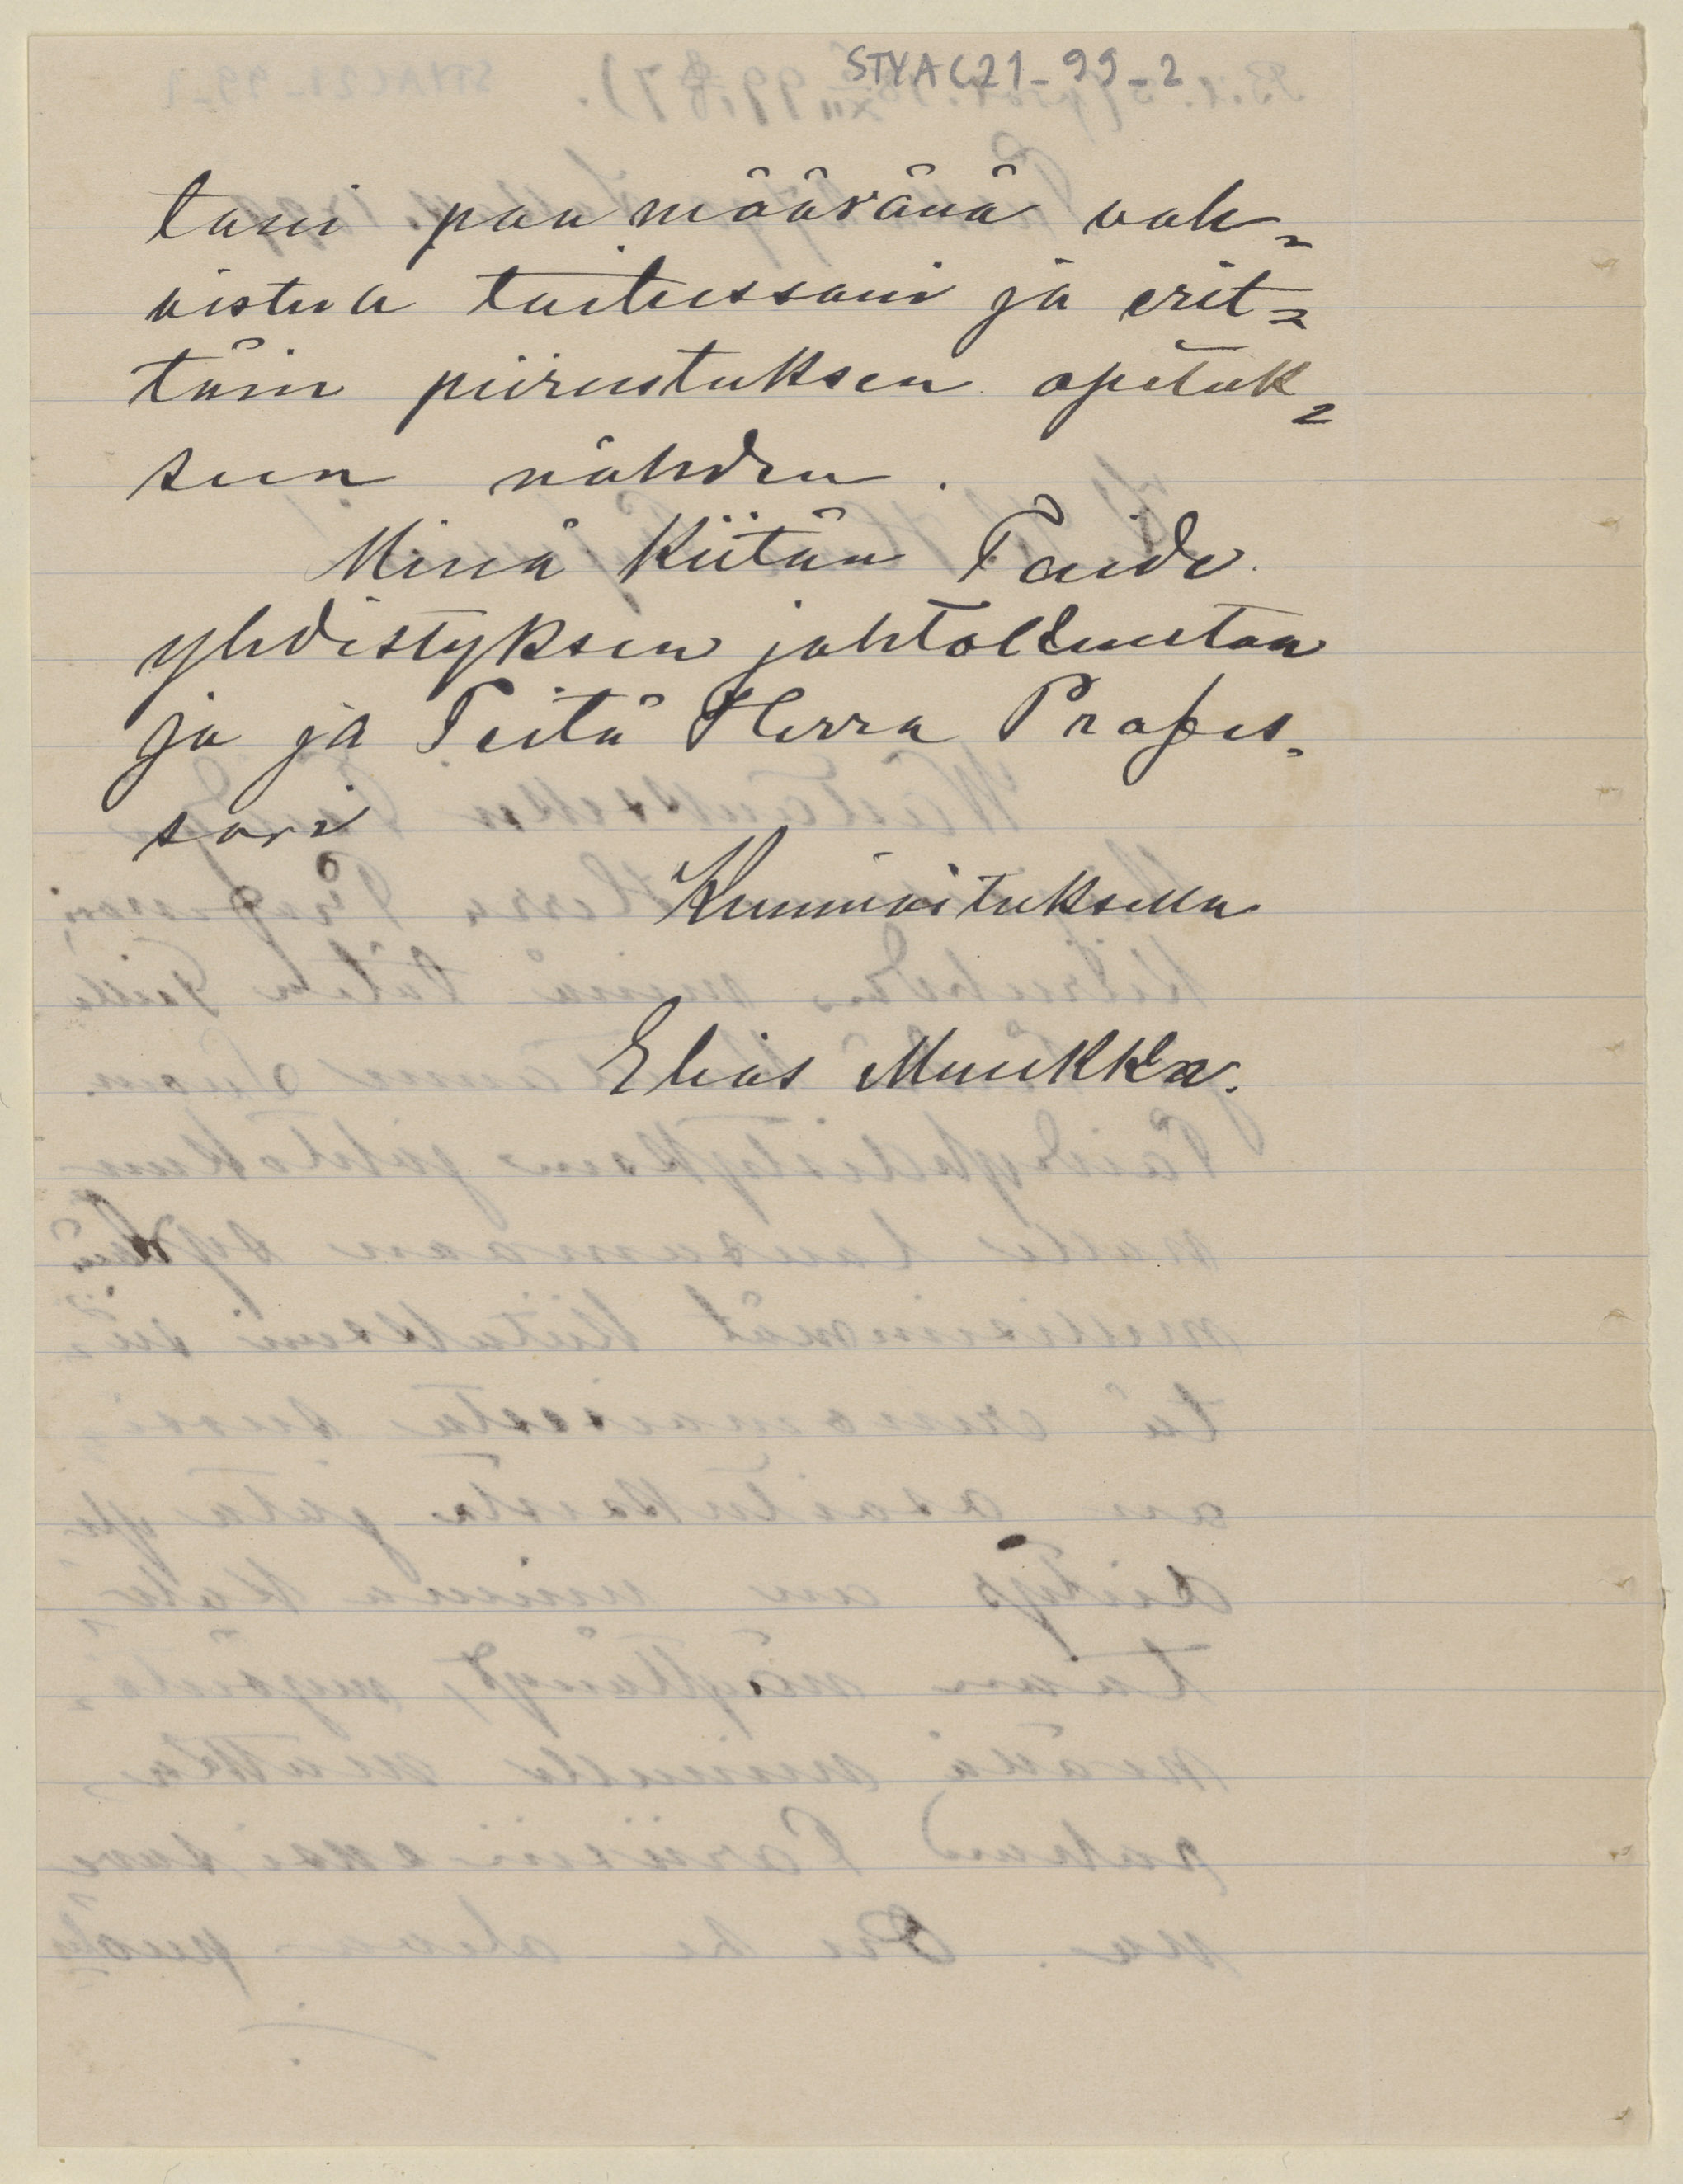 STYA C21_99_2
tani paamääränä vah=
vistua taiteessani ja erit=
täin piirustuksen opetuk=
seen nähden.
Minä kiitän Taide
yhdistyksen johtokuntaa
ja ja Teitä Herra Profes=
sori
Kunnioituksella
Elias Muukka.